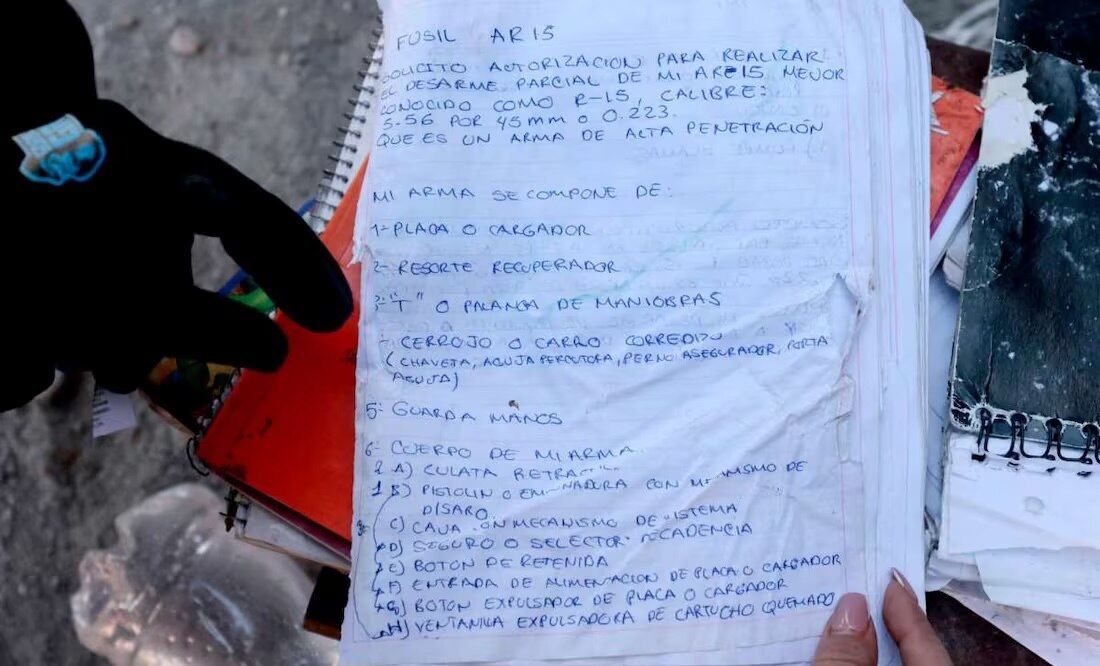 FUSIL AR15
SOLICITO AUTORIZACION PARA REALIZAR
EL DESARME PARCIAL DE MI AR-15 MEJOR
CONOCIDO COMO R-15, CALIBRE:
5.56 POR 45 mm o 0.223.
QUE ES UN ARMA DE ALTA PENETRACIÓN
MI ARMA SE COMPONE DE:
1- PLACA O CARGADOR
2- RESORTE RECUPERADOR
3- "T" O PALANCA DE MANIOBRAS
- CERROJO O CARRO CORREDIZO
(CHAVETA, AGUJA PERCUTORA, PERNO ASEGURADOR, PORTA
AGUJA)
5- GUARDA MANOS
6- CUERPO DE MI ARMA
A) CULATA
B) PISTOLIN O CON MECANISMO DE
DISARO
C) CAJA CON MECANISMO DE SISTEMA
D) SEGURO O SELECTOR CADENCIA
E) BOTON DE RETENIDA
F) ENTRADA DE ALIMENTACION DE PLACA O CARGADOR
G) BOTON EXPULSADOR DE PLACA O CARGADOR
H) VENTANILLA EXPULSADORA DE CARTUCHO QUEMADO